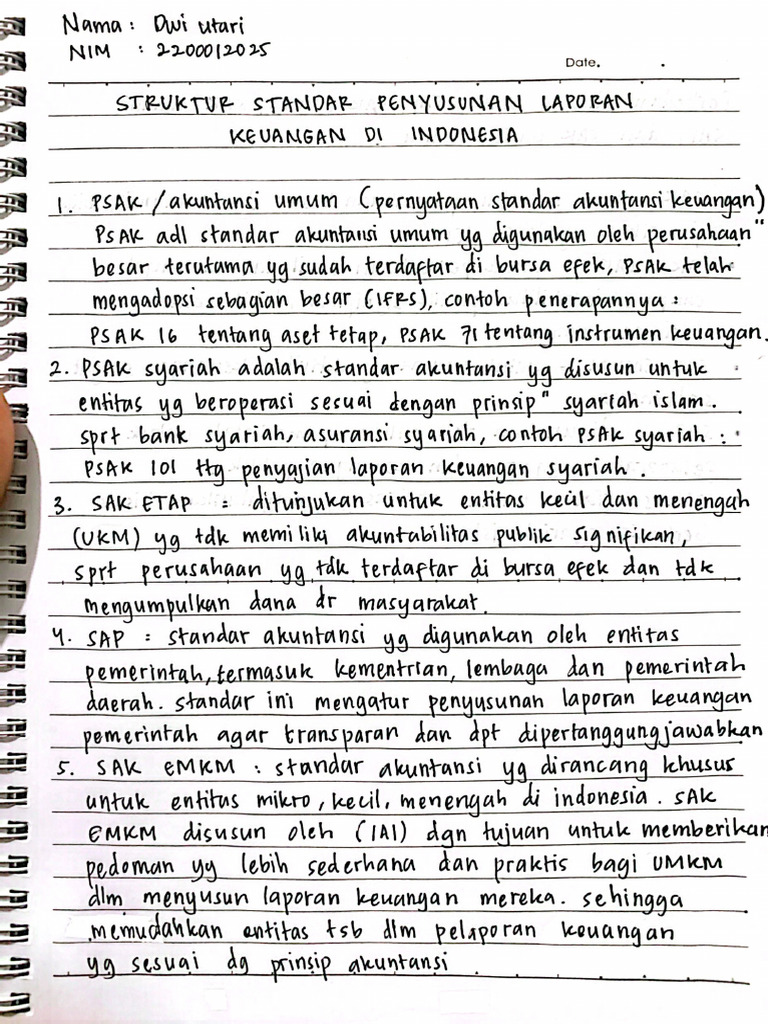 Nama : Dwi utari
NIM : 2200012025
Date.
STRUKTUR STANDAR PENYUSUNAN LAPORAN
KEUANGAN DI INDONESIA
1. PSAK / akuntansi umum (pernyataan standar akuntansi keuangan)
PSAK adl standar akuntansi umum yg digunakan oleh perusahaan"
besar terutama yg sudah terdaftar di bursa efek, PSAK telah
mengadopsi sebagian besar (IFRS), contoh penerapannya :
PSAK 16 tentang aset tetap, PSAK 71 tentang instrumen keuangan.
2. PSAK syariah adalah standar akuntansi yg disusun untuk
entitas yg beroperasi sesuai dengan prinsip" syariah islam.
sprt bank syariah, asuransi syariah, contoh PSAK syariah :
PSAK 101 ttg penyajian laporan keuangan syariah.
3. SAK ETAP : ditunjukan untuk entitas kecil dan menengah
(UKM) yg tdk memiliki akuntabilitas publik signifikan,
sprt perusahaan yg tdk terdaftar di bursa efek dan tdk
mengumpulkan dana dr masyarakat.
4. SAP : standar akuntansi yg digunakan oleh entitas
pemerintah, termasuk kementrian, lembaga dan pemerintah
daerah. standar ini mengatur penyusunan laporan keuangan
pemerintah agar transparan dan dpt dipertanggungjawabkan
5. SAK EMKM : standar akuntansi yg dirancang khusus
untuk entitas mikro, kecil, menengah di indonesia. SAK
EMKM disusun oleh (IAI) dgn tujuan untuk memberikan
pedoman yg lebih sederhana dan praktis bagi UMKM
dlm menyusun laporan keuangan mereka. sehingga
memudahkan entitas tsb dlm pelaporan keuangan
yg sesuai dg prinsip akuntansi